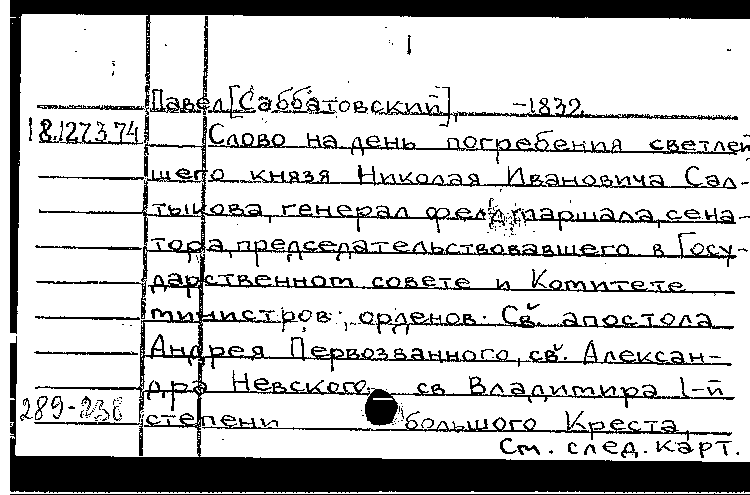 1
Павел [Саббатовский], -1832.
18.127.3.74 Слово на день погребения светлей
шего князя Николая Ивановича Сал-
тыкова, генерал фельдмаршала, сена-
тора, председательствовавшего в Госу-
дарственном совете и Комитете
министров, орденов. Св. апостола
Андрея Первозванного, св. Алексан-
дра Невского, св Владимира 1-й
степени большого Креста,
См. след. карт.